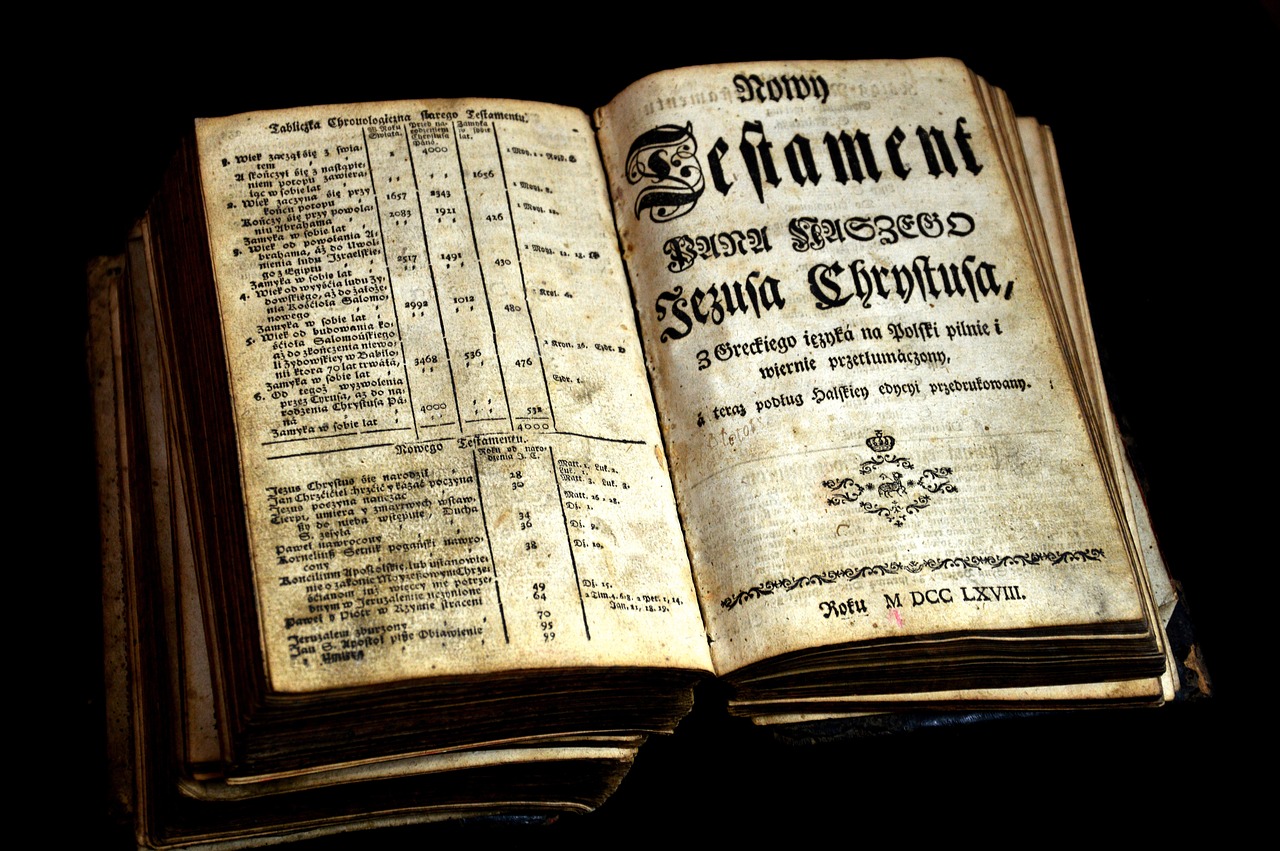 Tabliczka Chronologiczna starego Testamentu.
W Roku Swiata.
Przed narodzeniem Chrystusa Pana.
Zamyka w sobie lat.
1. Wiek zaczął się z świa-
tem 1 4000 1 Moy. 1 •
A skończył się z nastąpie-
niem potopu zawiera-
iąc w sobie lat 1656
2. Wiek zaczyna się przy
końcu potopu 1657 2343
Kończy się przy powoła-
niu Abrahama 2083 1921
Zamyka w sobie lat 426
3. Wiek od powołania A-
brahama, aż do Uwol-
nienia ludu Izraelskie-
go z Egiptu 2517 1491
Zamyka w sobie lat 430
4. Wiek od wyyścia ludu Zy-
dowskiego, aż do założe-
nia Kościoła Salomo-
nowego 2992 1012 1 Król. 6.
Zamyka w sobie lat 480
5. Wiek od budowania ko-
ścioła Salomońskiego
aż do zkończenia niewo-
li Zydowskiey w Babilo-
nii ktora 70 lat trwała, 3468 536
Zamyka w sobie lat 476
6. Od tegoż wyzwolenia Ezdr. 1.
przez Cyrusa, aż do na-
rodzenia Chrystusa Pa-
na 4000
Zamyka w sobie lat 532
4000
Nowego Testamentu.
Roku od naro-
dzenia J. C.
Jezus Chrystus się narodził
Jan Chrzciciel chrzcić y kazać poczyna 28
Jezus poczyna nauczać 30
Cierpi, umiera y zmartwych wstaw-
szy do nieba wstępuie, Ducha
S. zsyła 34
Paweł nawrocony 36 Dź. 9.
Korneliusz Setnik pogański nawro-
cony 38 Dź. 10.
Koncilium Apostolskie, lub ustanowie-
nie o zakonie Moyżeszowym Chrze-
ścianom iuż więcey nie potrze-
bnym w Jeruzalemie uczynione 49 Dź. 15.
Paweł y Piotr w Rzymie straceni 64 2 Tim. 4. 6. 8. 2 Pet. 1, 14.
Jan. 21, 18. 19.
Jeruzalem zburzony 70
Jan S. Apostoł pisze Obiawienie 95
y Umiera 99
Nowy
Testament
PANA NASZEGO
Jezusa Chrystusa,
Z Greckiego ięzyká na Polski pilnie i
wiernie przetłumáczony,
á teraz podług Halskiey edycyi przedrukowany.
Roku M DCC LXVIII.